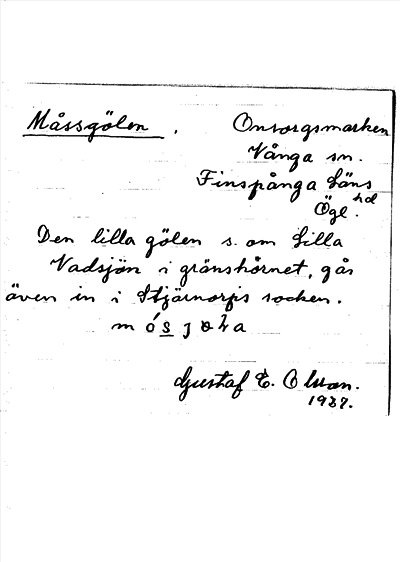 Måssgölen. Onsorgsmarken
Vånga sn.
Finspånga Läns
hd
Ögl.
Den lilla gölen s. om Lilla
Vadsjön i gränshörnet, går
även in i Stjärnorps socken.
Gustaf E. Olson.
1937.